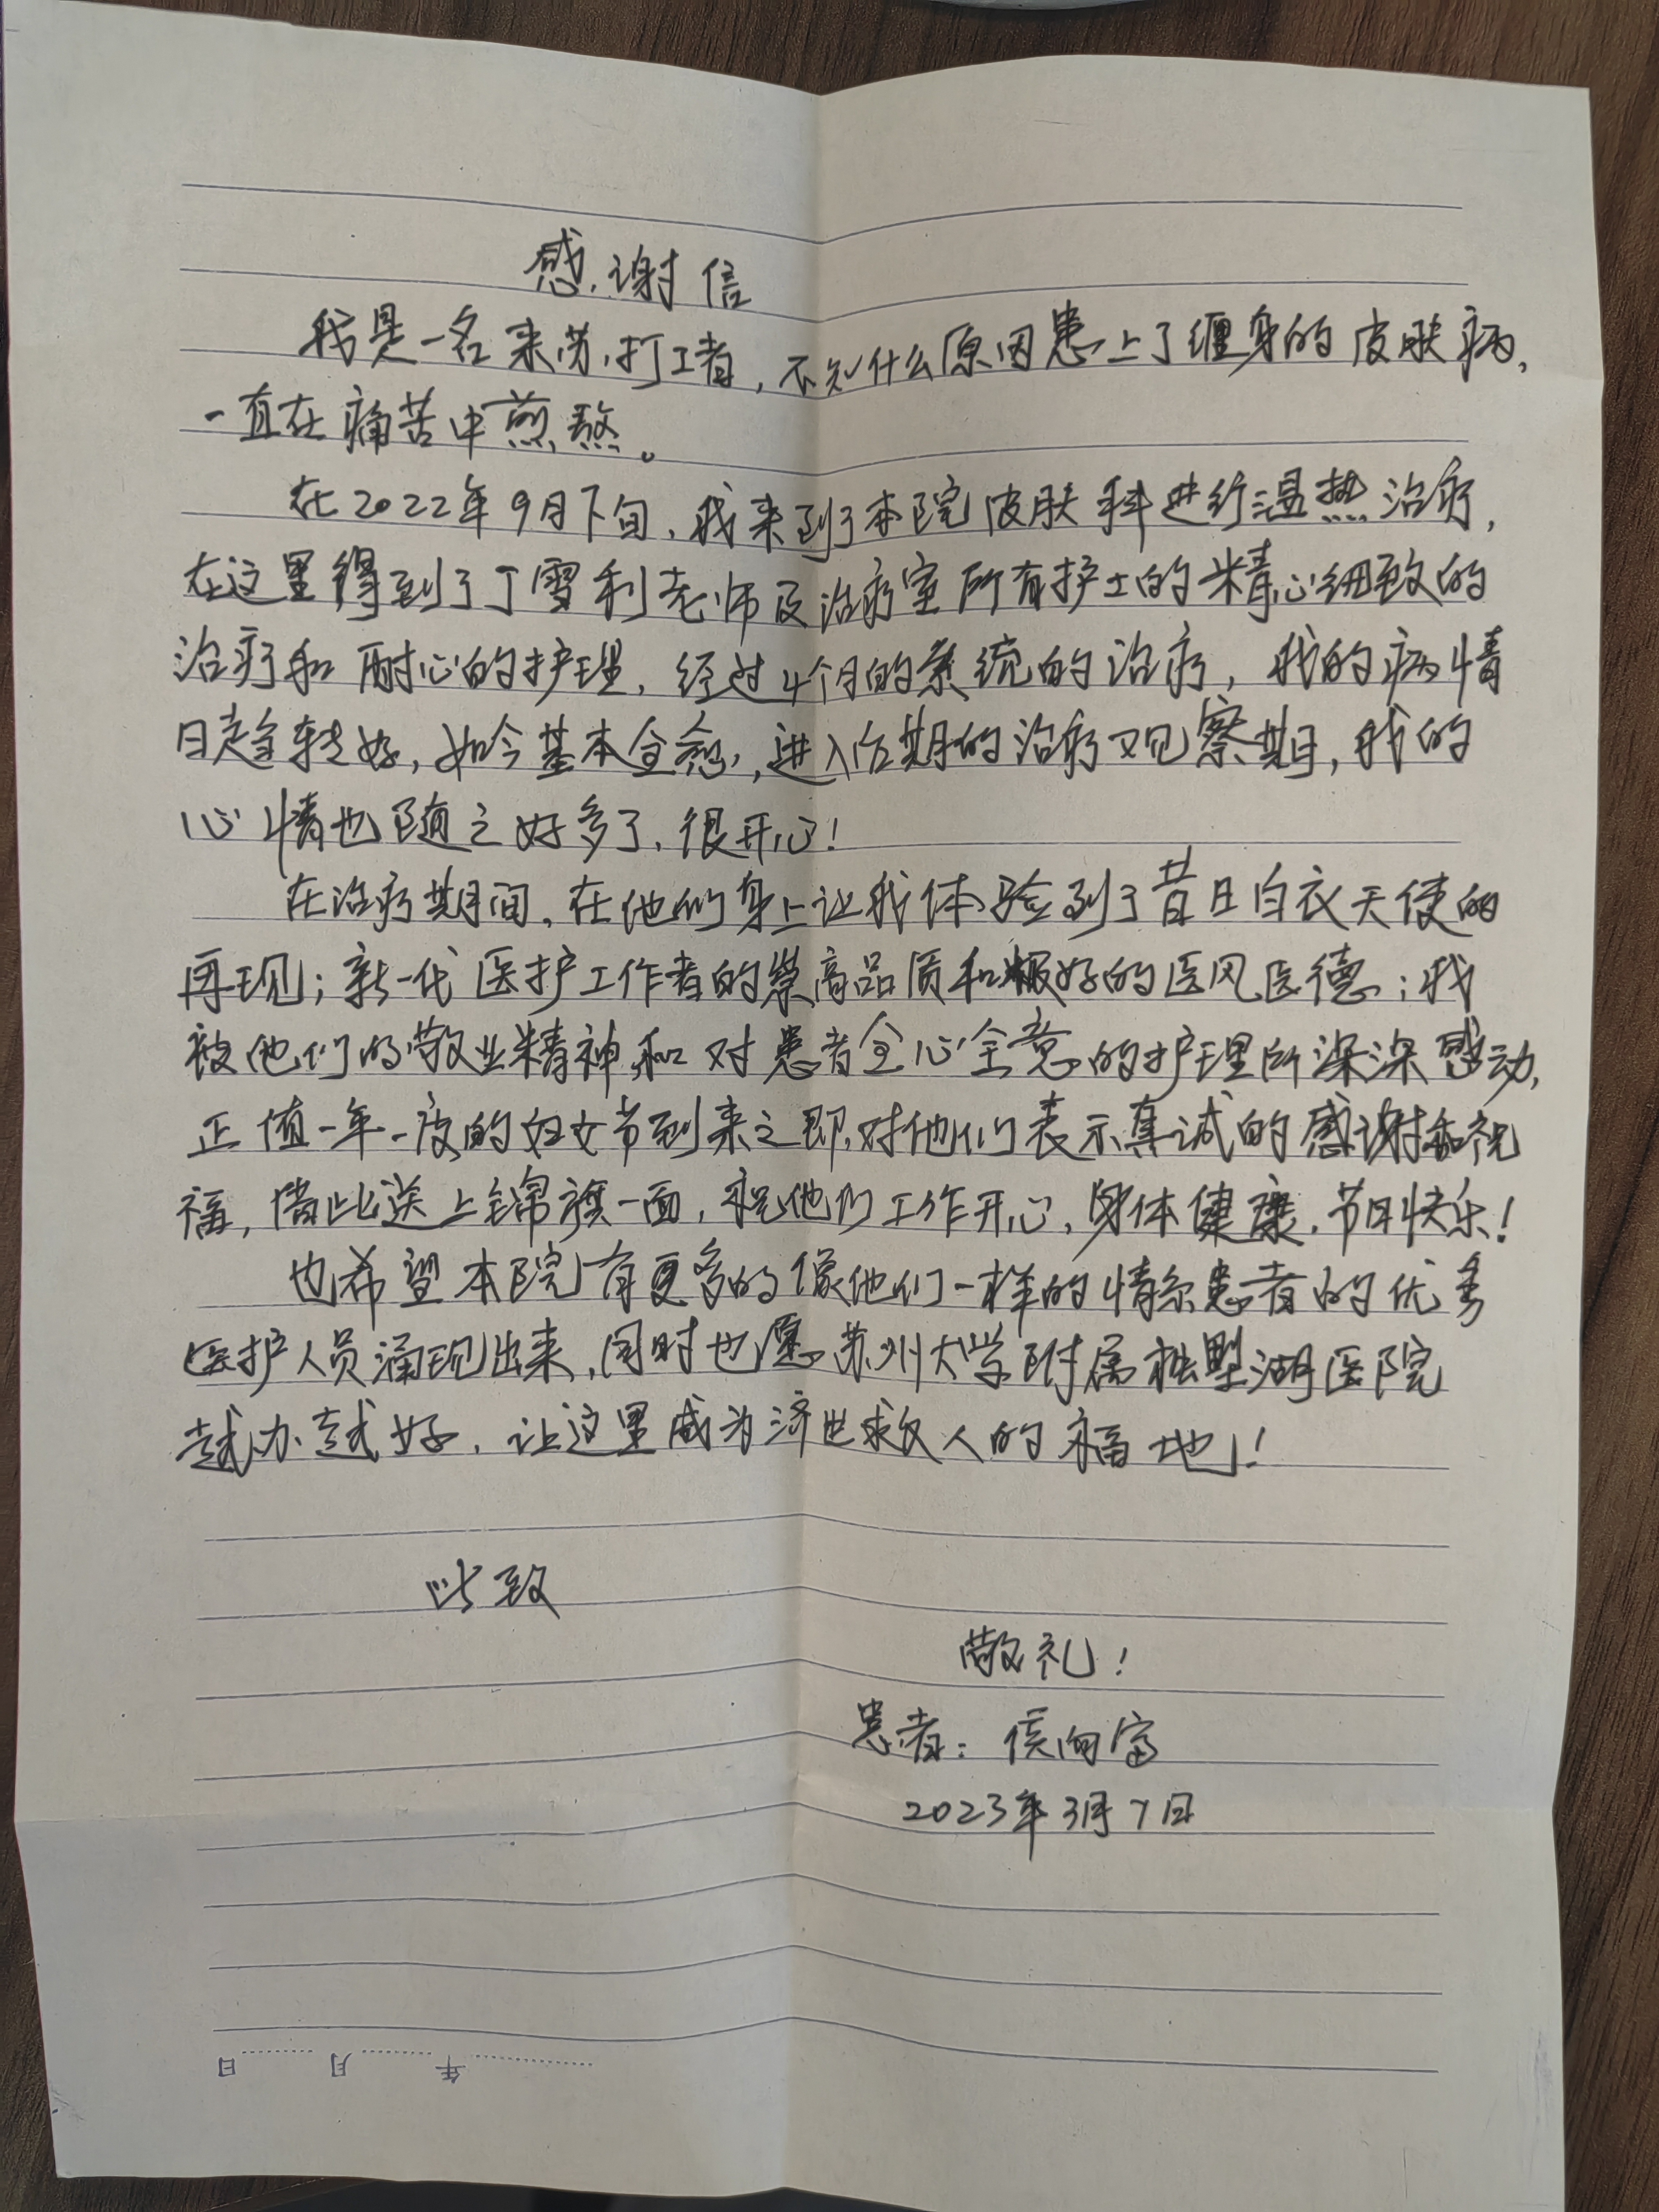 感谢信
我是一名来苏打工者，不知什么原因患上了缠身的皮肤病，
一直在痛苦中煎熬。
在2022年9月下旬，我来到了本院皮肤科进行温热治疗，
在这里得到了丁雪利老师及治疗室所有护士的精心细致的
治疗和耐心的护理，经过4个月的系统的治疗，我的病情
日趋转好，如今基本全愈，进入后期的治疗观察期，我的
心情也随之好多了，很开心！
在治疗期间，在他们身上让我体验到了昔日白衣天使的
再现；新一代医护工作者的崇高品质和极好的医风医德；我
被他们的敬业精神和对患者全心全意的护理所深深感动，
正值一年一度的妇女节到来之即，对他们表示真诚的感谢和祝
福，借此送上锦旗一面，祝他们工作开心，身体健康，节日快乐！
也希望本院有更多的像他们一样的情系患者的优秀
医护人员涌现出来，同时也愿苏州大学附属独墅湖医院
越办越好，让这里成为济世救人的福地！
此致
敬礼！
患者：侯向富
2023年3月7日
年 月 日